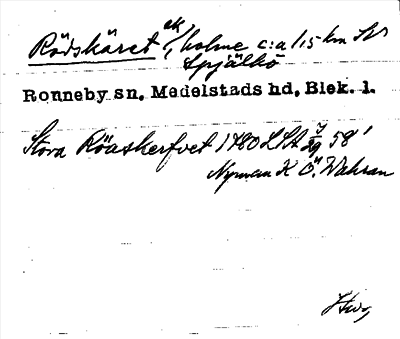 Rödskäret ek/, holme c:a 1,5 km SV
Spjälkö
Ronneby sn, Medelstads hd, Blek. l.
Stora Röaskerfvet 1780 LSA 58'
Nyman K Ö. Wahran